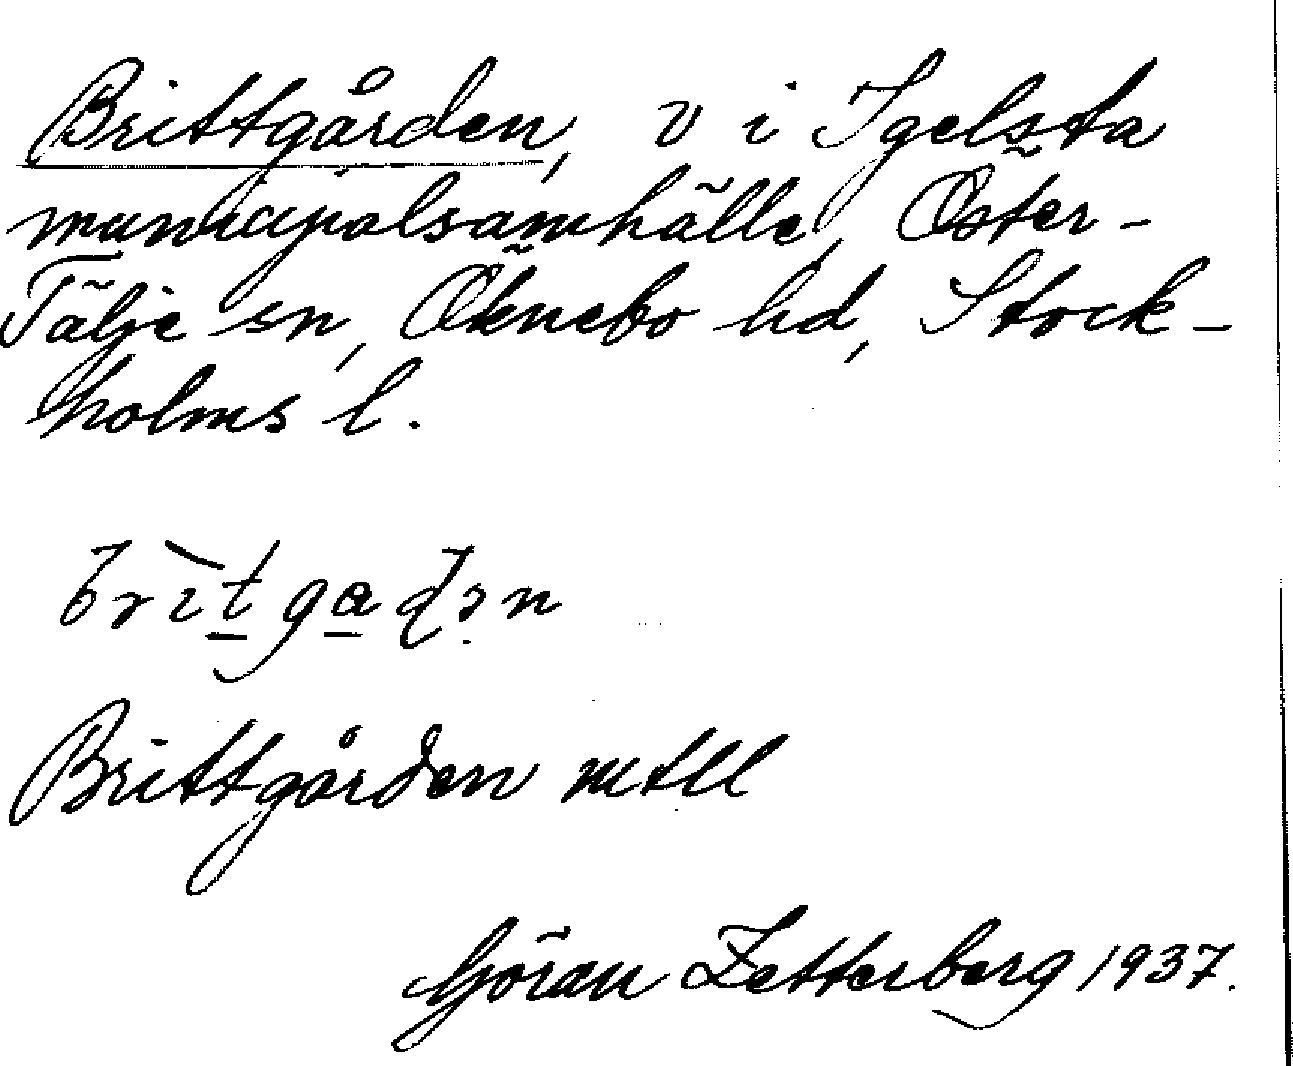 Brittgården, v i Igelsta
municipalsamhälle, Öster-
Tälje sn, Öknebo hd, Stock-
holms l.
Brittgården mtll
Göran Zetterberg 1937.